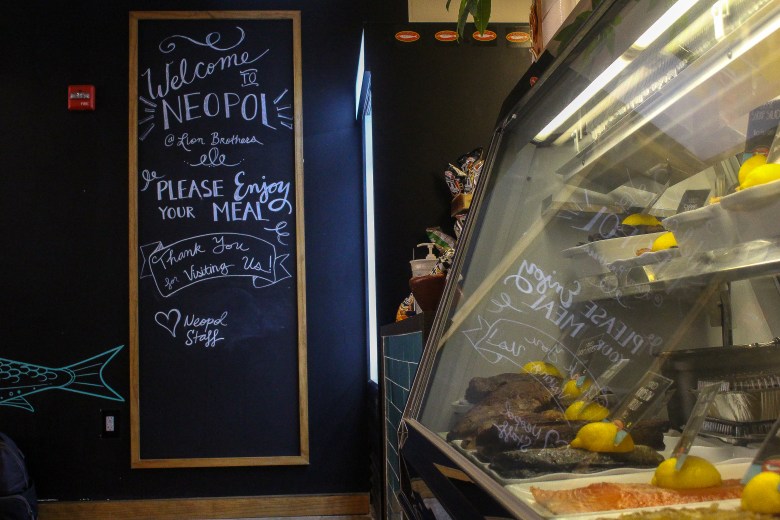 Welcome
TO
NEOPOL
@ Lion Brothers
PLEASE Enjoy
YOUR MEAL
Thank You
for Visiting Us!
Neopol
Staff